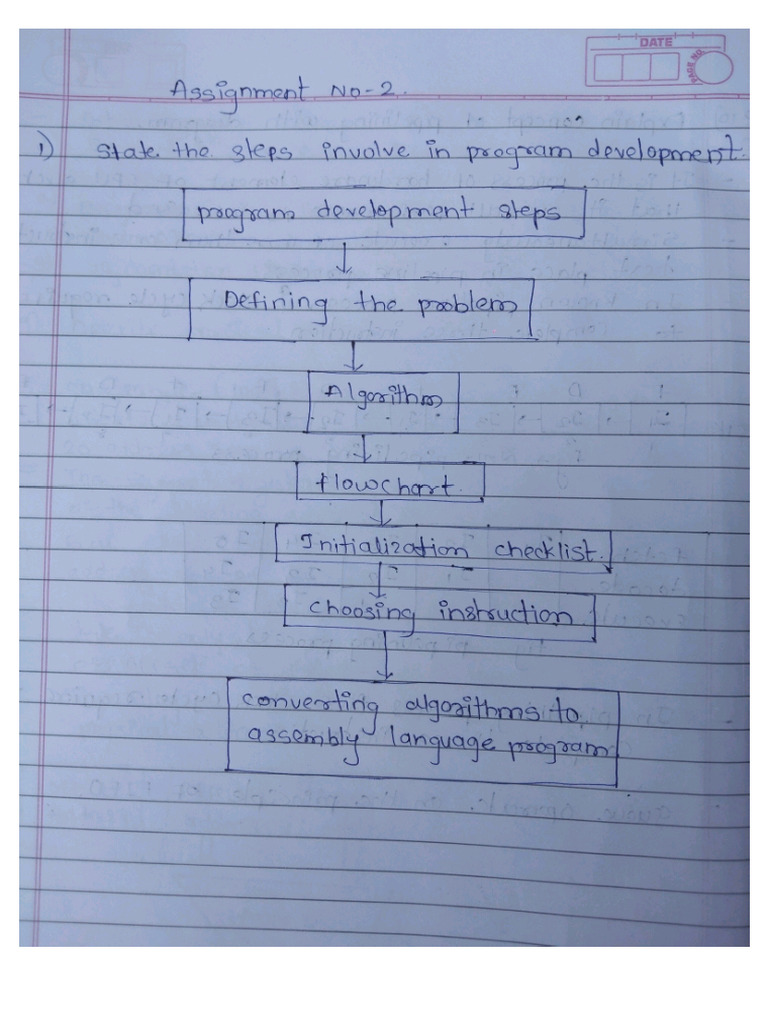 DATE
PAGE NO.
Assignment No-2.
1) State the steps involve in program development.
program development steps
Defining the problem
Algorithm
flowchart.
Initialization checklist.
choosing instruction
converting algorithms to
assembly language program